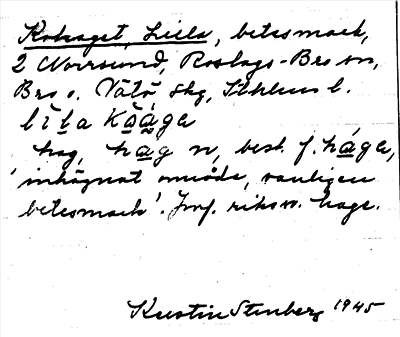 Kohaget, Lilla, betesmark,
2 Norrsund, Roslags-Bro sn,
Bro o. Vätö skg, Sthlms l.
lila
hag, hag n, best. f. håge,
'inhägnat område, vanligen
betesmark'. Jmf. riksv. hage.
Kerstin Stenberg 1945